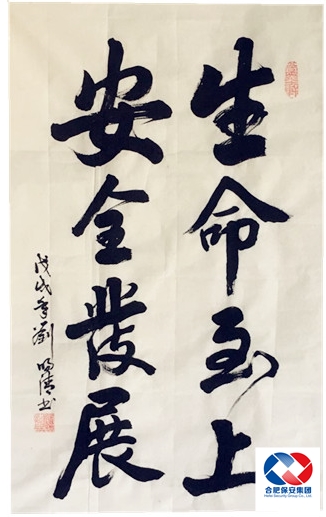 生命至上
安全發展
戊戌年劉明清书
合肥保安集团
Hefei Security Group Co., Ltd.